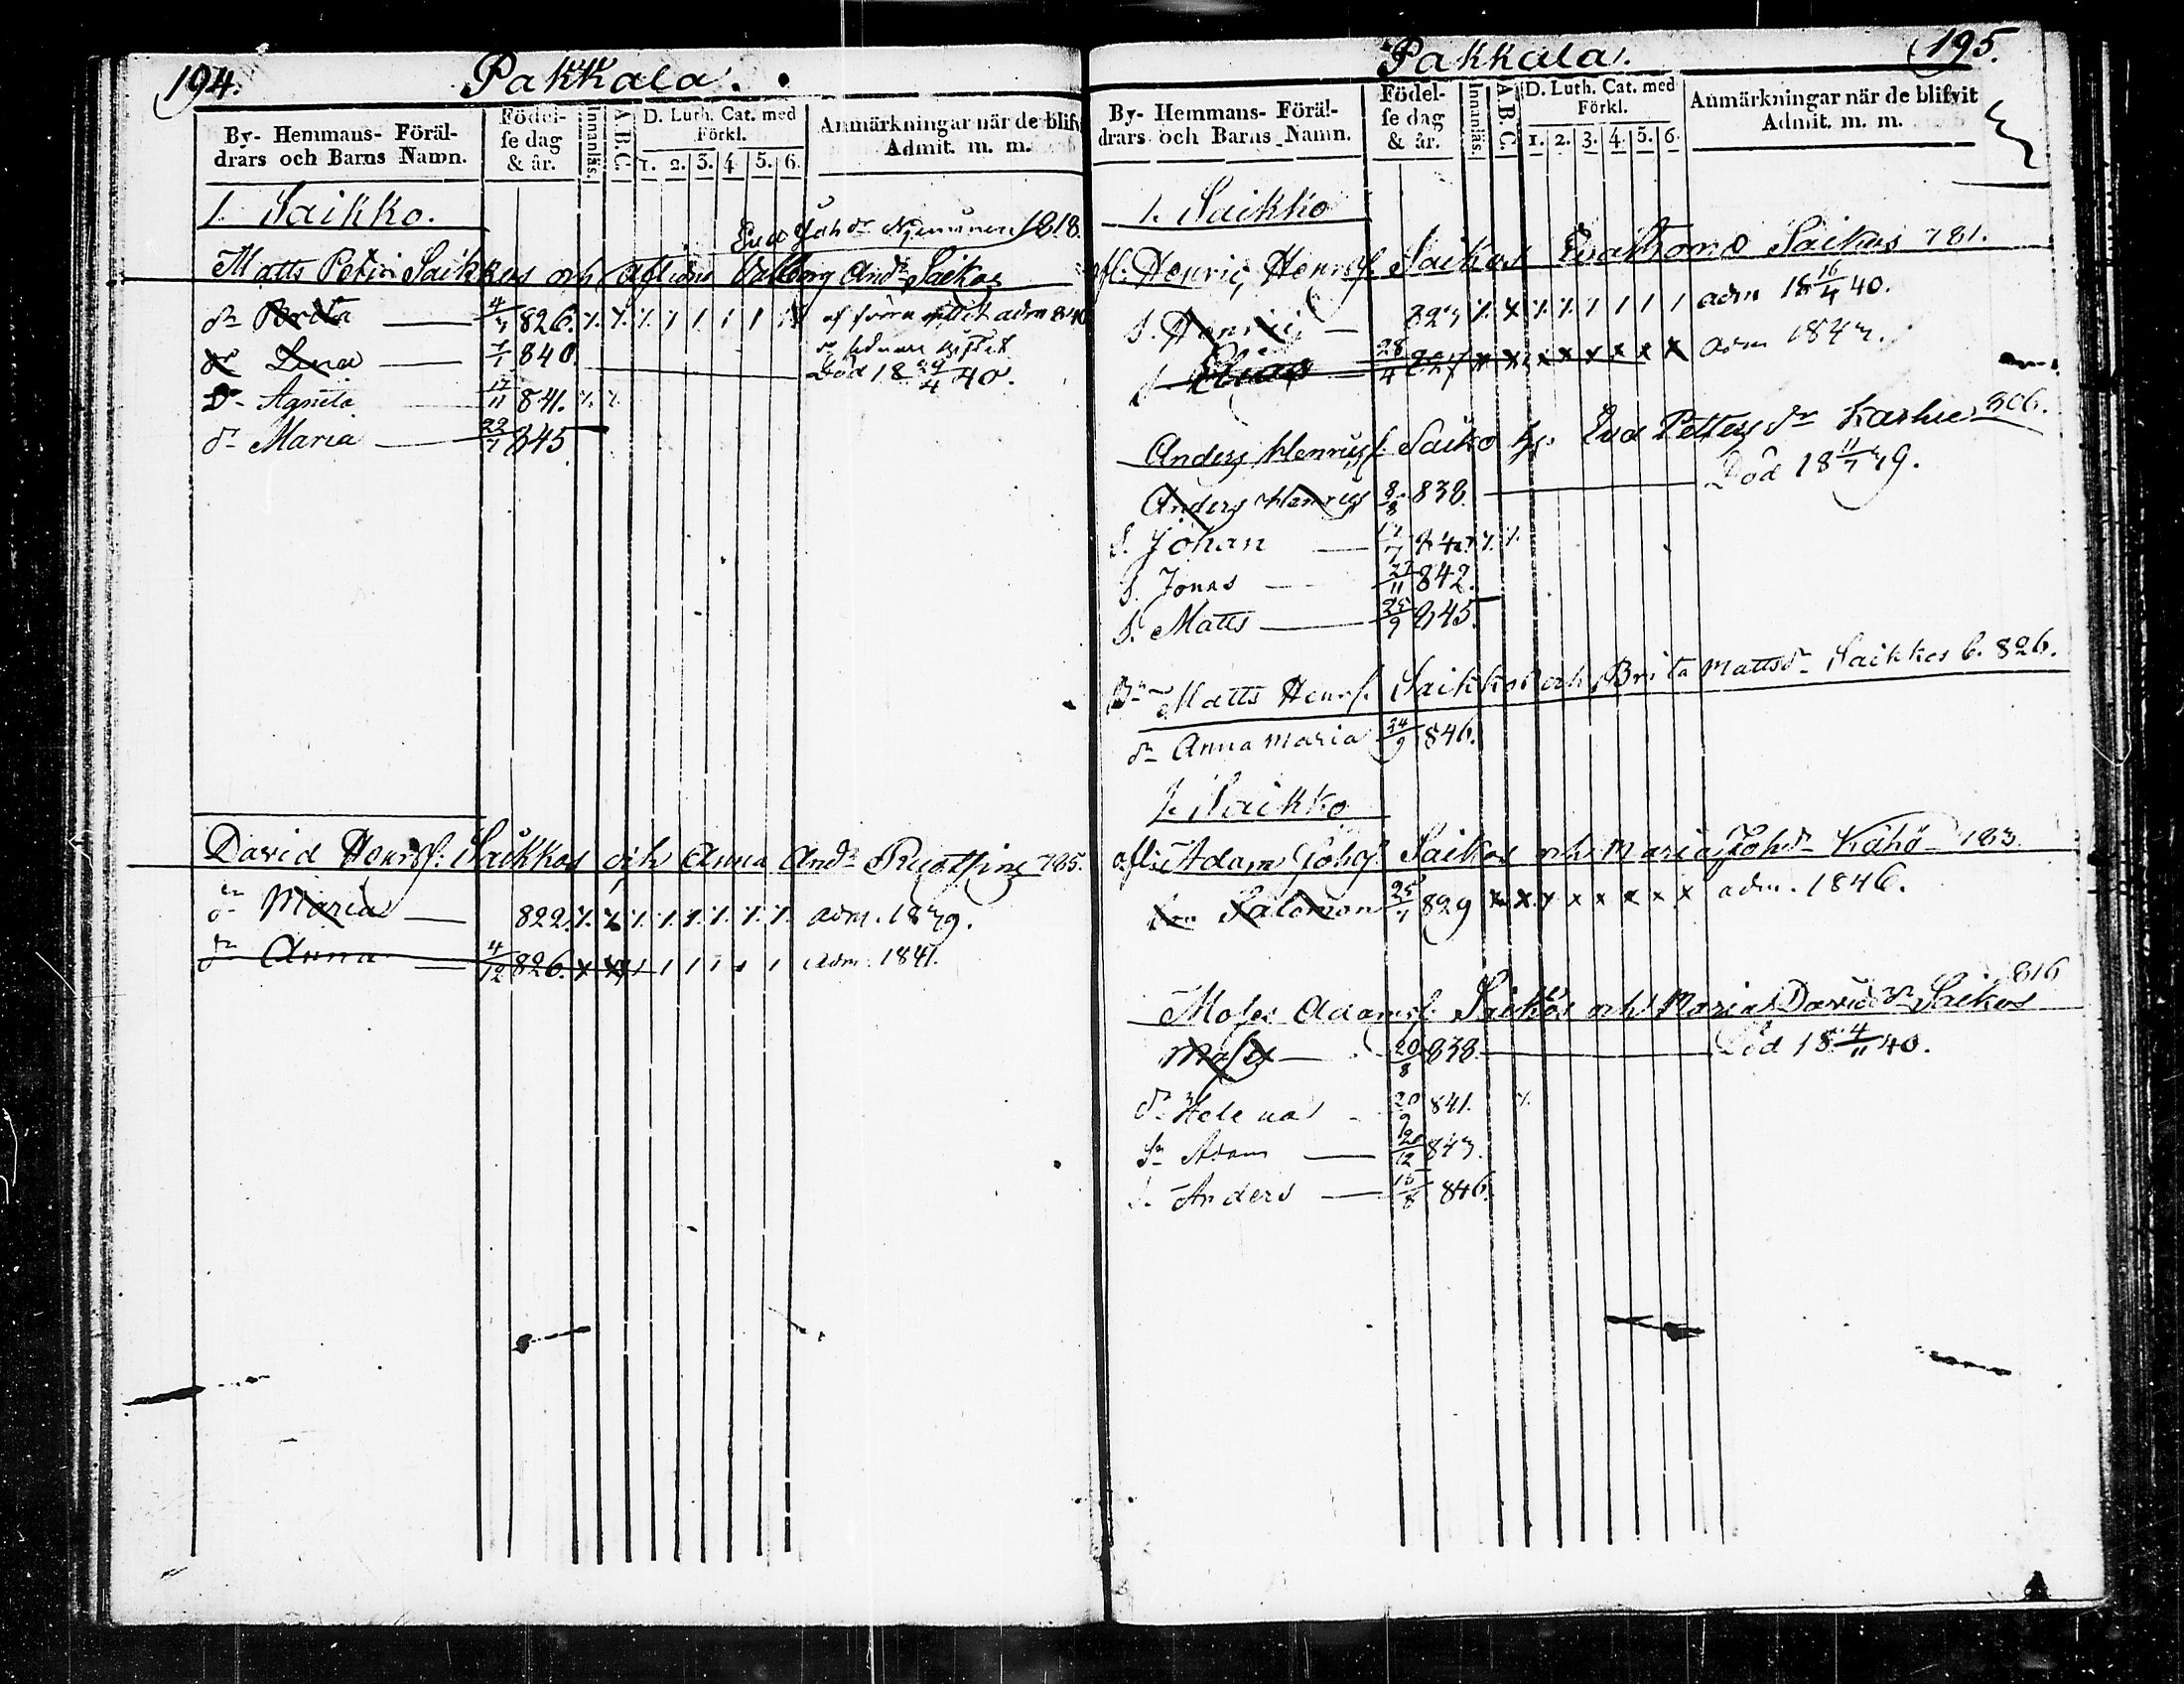 194. Pakkala.
By- Hemmans- Föräl-
drars och Barns Namn.
Födel-
se dag
& år.
Innanläs.
A.B.C.
D. Luth. Cat. med
Förkl.
1. 2. 3. 4. 5. 6.
Anmärkningar när de blifv
Admit. m. m.
1. Saikko.
Eva Joh dr 1818.
Matts Petri Saikkos och aflidna Valborg And dr Saikos
dr Brita 4/7 826. af förra giftet adm 840
dr Lena 7/1 840. dr sednare giftet
Död 18 29/4 40.
Dr Agneta 17/11 841.
dr Maria 22/7 845
David Henrss: Saikkos och Anna And dr 785.
dr Maria 822. adm. 1839.
dr Anna 4/12 826. adm. 1841.
Pakkala. 195.
By- Hemmans- Föräl-
drars och Barns Namn.
Födel-
se dag
& år.
Innanläs.
A.B.C.
D. Luth. Cat. med
Förkl.
1. 2. 3. 4. 5. 6.
Anmärkningar när de blifvit
Admit. m. m.
1. Saikko
afl: Henric Henrss. Saikos Eva Thom dr Saikos 781.
S. Henric 823 adm 18 16/4 40.
S. Elias 28/4 827 adm 1843.
Anders Henrics. Saiko Eva Petters dr Karhu 806.
Anders Henrics 8/8 838. Död 18 11/7 39.
S. Johan 17/7 840.
S. Jonas 27/11 842.
S. Matts 25/9 845.
Matts Henrs. Saikkos och Brita Matts dr Saikkos b. 826.
dr Anna Maria 24/9 846.
1. Saikko
afl: Adam Johs. Saikos och Maria Joh dr Kähö 783.
Son Salomon 25/7 829 adm. 1846.
816
Moses Adams. Saikos och Maria David dr Saikos
Moses 20/8 838. Död 18 4/11 40.
dr Helena 20/9 841.
Sn Adam 20/12 843.
S. Anders 16/8 846.